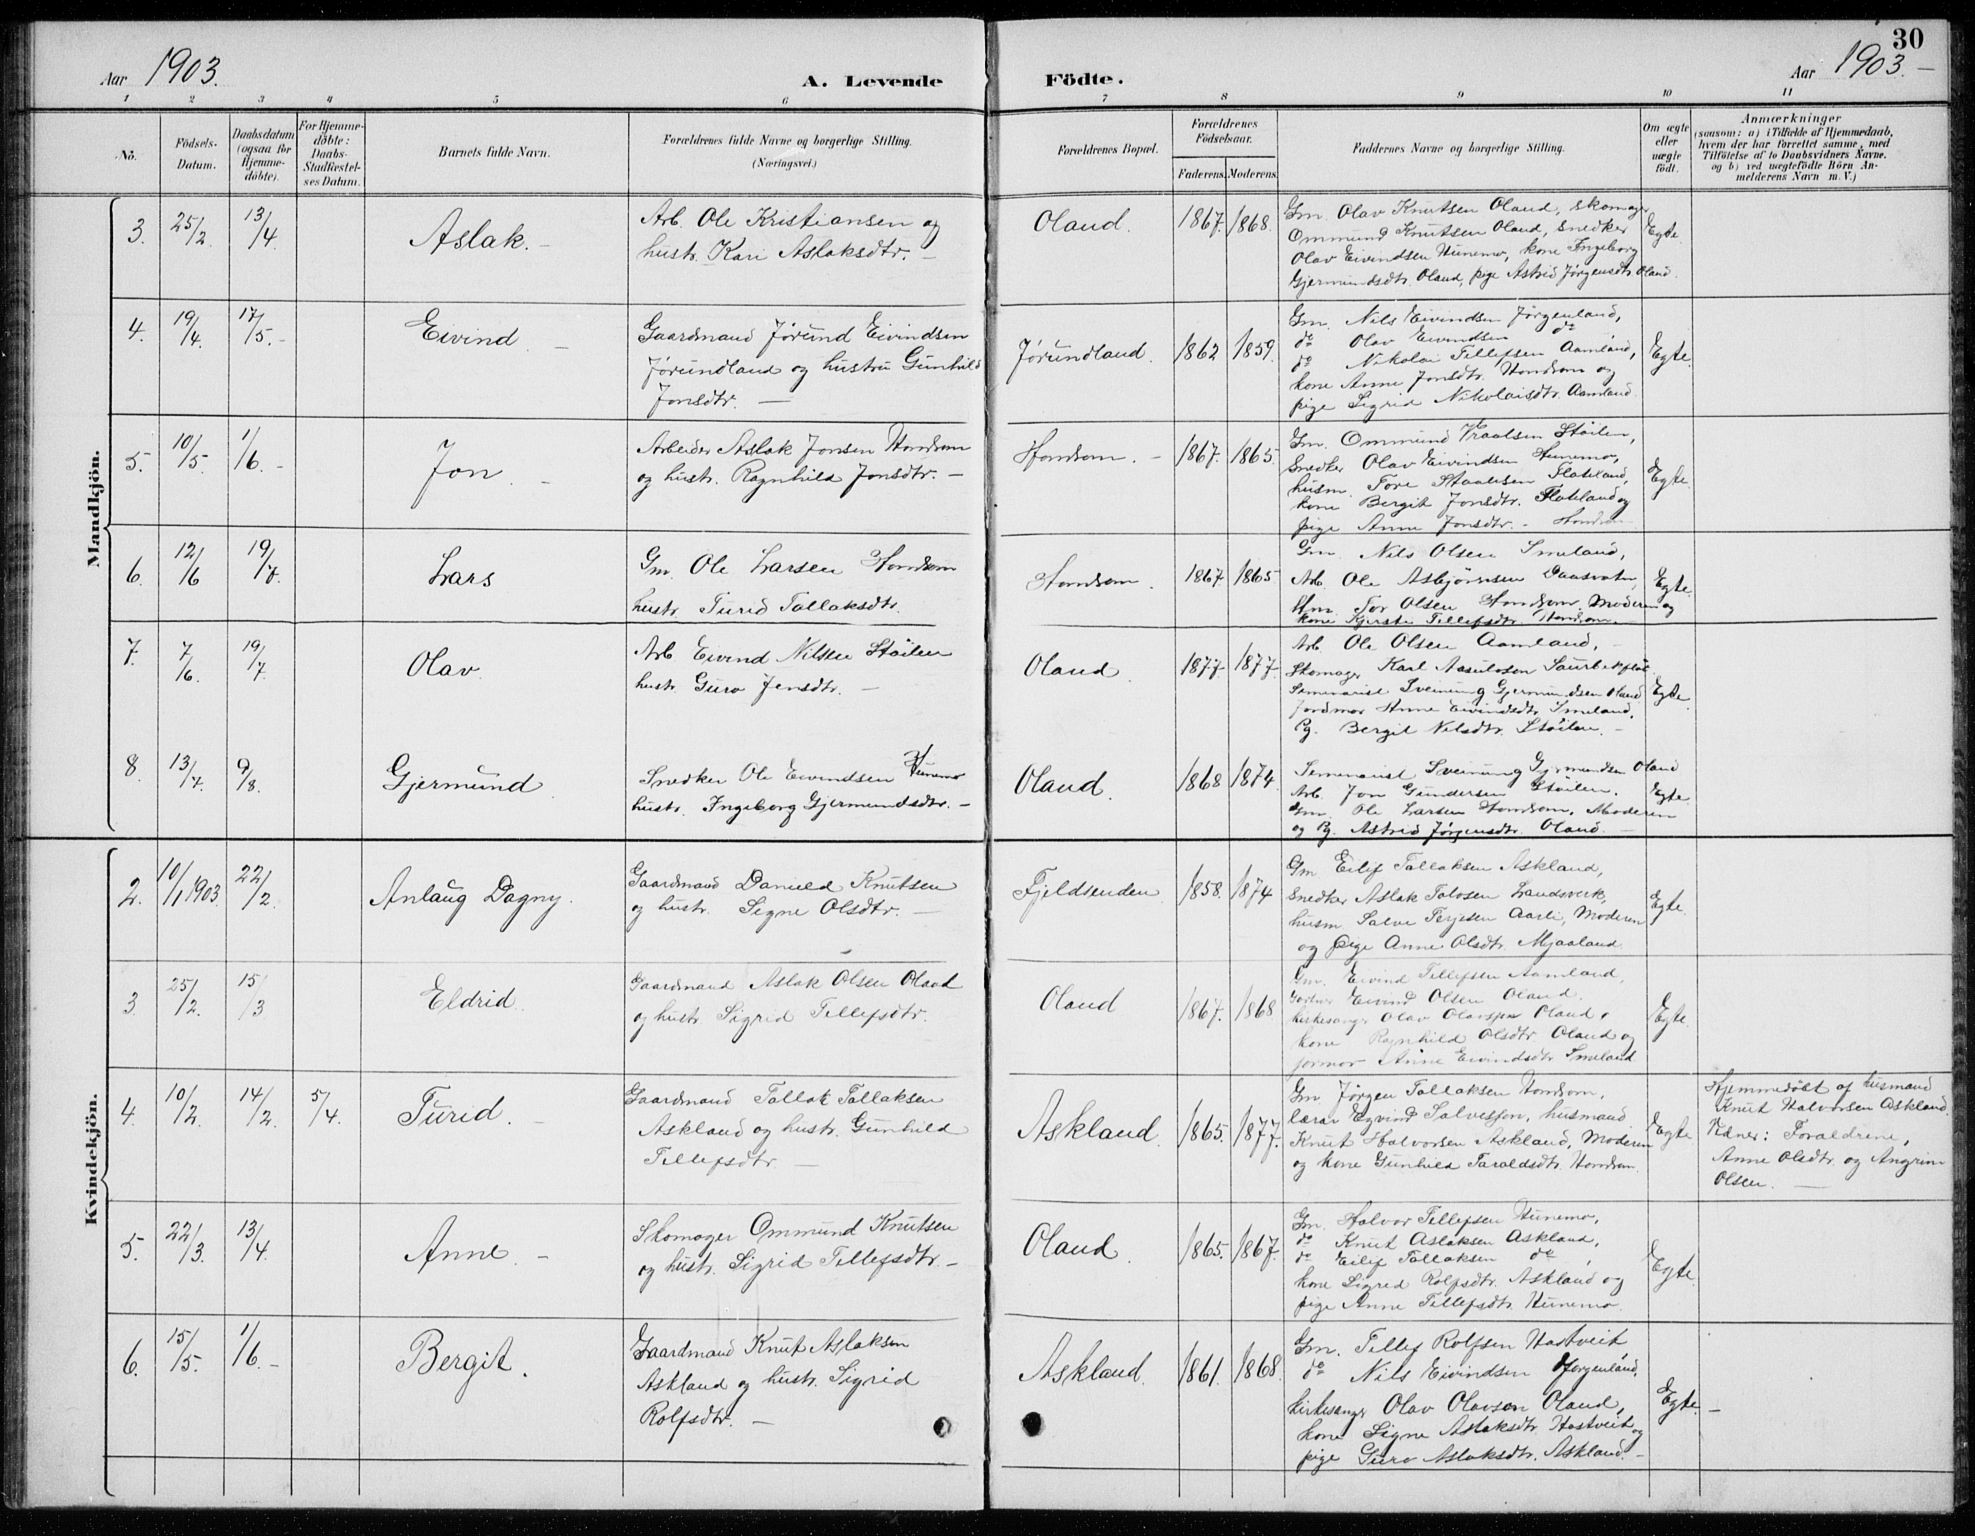 30
Aar 1903.
A. Levende
Födte.
Aar 1903.—
1 2 3 4 5 6 7 8 9 10 11
No.
Födsels-
Datum.
Daabsdatum
(ogsaa for
Hjemme-
döbte).
For Hjemme-
döbte:
Daabs-
Stadfæstel-
ses Datum.
Barnets fulde Navn.
Forældrenes fulde Navne og borgerlige Stilling.
(Næringsvei.)
Forældrenes Bopæl.
Forældrenes
Födselsaar.
Faderens. Moderens.
Faddernes Navne og borgerlige Stilling.
Om ægte
eller
uægte
födt.
Anmærkninger
(saasom: a) i Tilfælde af Hjemmedaab,
hvem der har forrettet samme, med
Tilföielse af to Daabsvidners Navne.
og b) ved uægtefödte Börn An-
melderens Navn m. V.)
Mandkjön.
3. 25/2. 13/4. Aslak. —
Arb. Ole Kristiansen og
hustr. Kari Aslaksdtr. —
Oland. 1867. 1868.
Gm. Olav Knutsen Oland, skomager
Ommund Knutsen Oland, snedker
Olav Eivindsen Hunemo, kone Ingeborg
Gjermundsdtr. Oland, pige Astrid Jørgensdtr. Oland.
Egte.
4. 19/4. 17/5. — Eivind —
Gaardmand Jørund Eivindsen
Jørundland og hustru Gunhild
Jonsdtr. —
Jørundland. 1862 1859.
Gm. Nils Eivindsen Jørgenland,
do Olav Eivindsen do
do Nikolai Tellefsen Aamland,
kone Anne Jonsdtr. Homdrom og
pige Sigrid Nikolaisdtr. Aamland.
Egte.
5. 10/5. 1/6. — Jon —
Arbeider Aslak Jonsen Homdrom
og hustr. Ragnhild Jonsdtr. —
Homdrom. — 1867. 1865.
Gm. Ommund Vraalsen Støilen,
Snedker Olav Eivindsen Hunemo,
husm. Tore Staalesen Flateland,
kone Bergit Jonsdtr. Flateland og
pige Anne Jonsdtr. — Homdrom
Egte.
6. 12/6 19/7. Lars
Gm. Ole Larsen Homdrom
hustr. Turid Tallaksdtr.
Homdrom. 1867 1865
Gm. Nils Olsen Smeland,
Arb. Ole Asbjørnsen Daasvatn,
Hm. Tor Olsen Homdrom. Moderen og
kone Kjersti Tellefsdtr. Homdrom.
Egte.
7. 7/6. 19/7. Olav
Arb Eivind Nilsen Støilen
hustr. Guro Jensdtr. —
Oland 1877. 1877.
Arb. Ole Olsen Aamland, —
Skomager Karl
Seminarist Sveinung Gjermundsen Oland
Jordmor Anne Eivindsdtr. Smeland,
Pg. Bergit Nilsdtr. Støilen. —
Egte
8. 13/7. 9/8. Gjermund
Snedker Ole Eivindsen Hunemo
hustr. Ingeborg Gjermundsdtr. —
Oland. 1868 1874.
Seminarist Sveinung Gjermundsen Oland
Arb. Jon Gundersen Støilen.
Gm. Ole Larsen Homdrom. Moderen
og Pg. Astrid Jørgensdtr. Oland. —
Egte.
Kvindekjön.
2. 10/1 1903. 22/2. Anlaug Dagny.
Gaardmand Danield Knutsen
og hustr. Signe Olsdtr. —
Fjeldsenden 1858. 1874
Gm Eilif Tallaksen Askland,
Snedker Aslak Landsverk,
husm Salve Terjesen Aarli, Moderen
og pige Anne Olsdtr. Mjaaland.
Egte.
3. 25/2. 15/3 Eldrid.
Gaardmand Aslak Olsen Oland
og hustr. Sigrid Tellefsdtr.
Oland 1867. 1868
Gm. Eivind Tellefsen Aamland,
Eivind Olsen Oland.
kirkesanger Olav Olavsen Oland,
kone Ragnhild Olsdtr. Oland og
jormor Anne Eivindsdtr. Smeland
Egte.
4. 10/2. 14/2. 5/4. Turid. —
Gaardmand Tallak Tallaksen
Askland og hustr. Gunhild
Tellefsdtr. —
Askland. 1865. 1877.
Gm. Jørgen Tallaksen Homdrom,
lærer Eyvind Salvesen, husmand
Knut Halvorsen Askland, Moderen
og kone Gunhild Taraldsdtr. Homdrom.
Egte
Hjemmedøbt af husmand
Knut Halvorsen Askland.
Vidner: Forældrene,
Anne Olsdtr. og Angrim
Olsen. —
5. 22/3. 13/4. Anne —
Skomager Ommund Knutsen
og hustr. Sigrid Tellefsdtr. —
Oland. 1865. 1867.
Gm. Halvor Tellefsen Hunemo,
do Knut Aslaksen Askland,
do Eilif Tallaksen do,
kone Sigrid Rolfsdtr. Askland og
pige Anne Tellefsdtr. Hunemo.
Egte.
6. 15/5. 1/6. — Bergit.
Gaardmand Knut Aslaksen
Askland og hustr. Sigrid
Rolfsdtr. —
Askland. 1861. 1868.
Gm. Tellef Rolfsen Hastveit
do Nils Eivindsen Jørgenland,
kirkesanger Olav Olavsen Oland,
kone Signe Aslaksdtr. Hastveit og
pige Guro Aslaksdtr. Askland. —
Egte. —